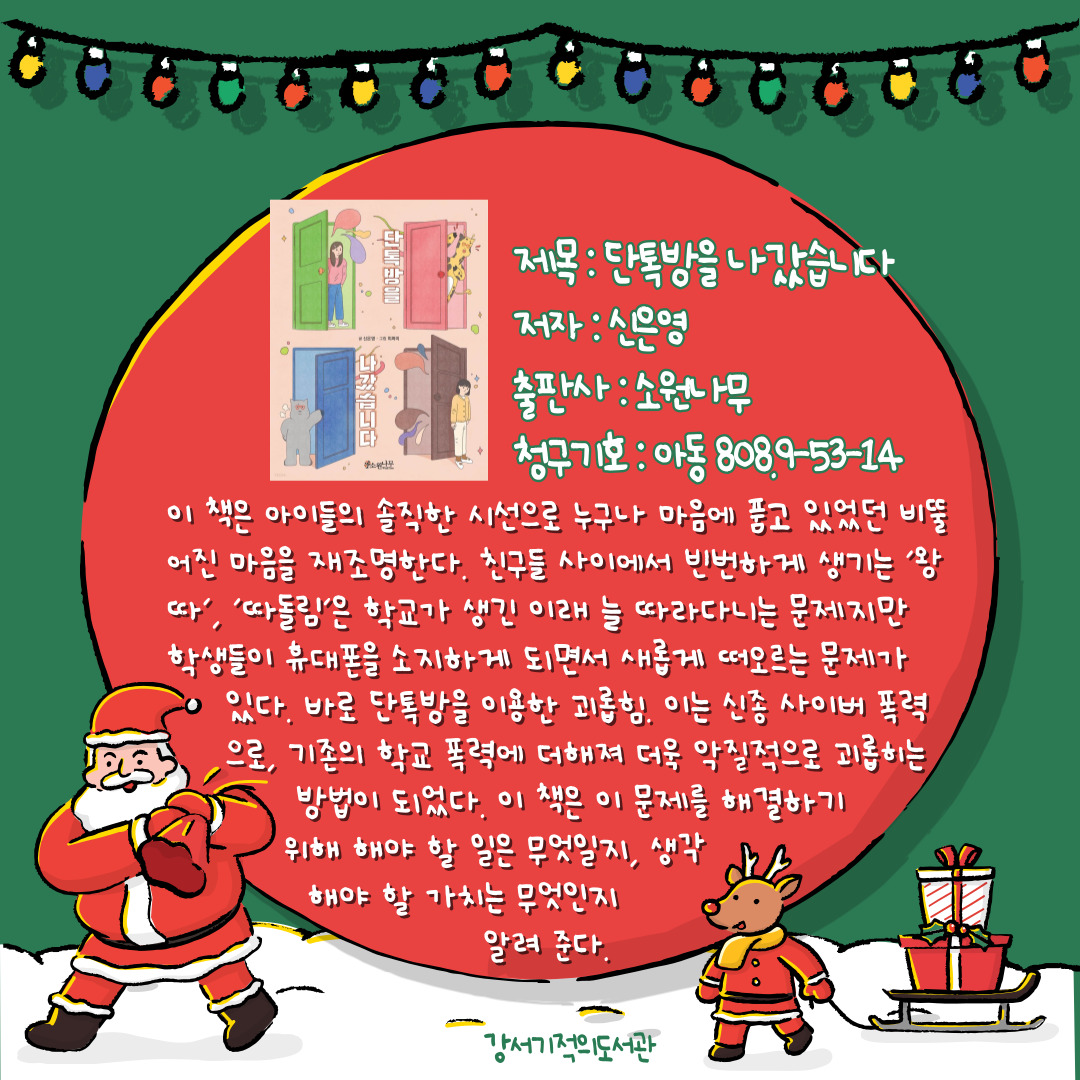 단톡방을
글 신은영 · 그림 히쩌미
나갔습니다
소원나무
제목 : 단톡방을 나갔습니다
저자 : 신은영
출판사 : 소원나무
청구기호 : 아동 808.9-53-14
이 책은 아이들의 솔직한 시선으로 누구나 마음에 품고 있었던 비뚤
어진 마음을 재조명한다. 친구들 사이에서 빈번하게 생기는 '왕
따', '따돌림'은 학교가 생긴 이래 늘 따라다니는 문제지만
학생들이 휴대폰을 소지하게 되면서 새롭게 떠오르는 문제가
있다. 바로 단톡방을 이용한 괴롭힘. 이는 신종 사이버 폭력
으로, 기존의 학교 폭력에 더해져 더욱 악질적으로 괴롭히는
방법이 되었다. 이 책은 이 문제를 해결하기
위해 해야 할 일은 무엇일지, 생각
해야 할 가치는 무엇인지
알려 준다.
강서기적의도서관